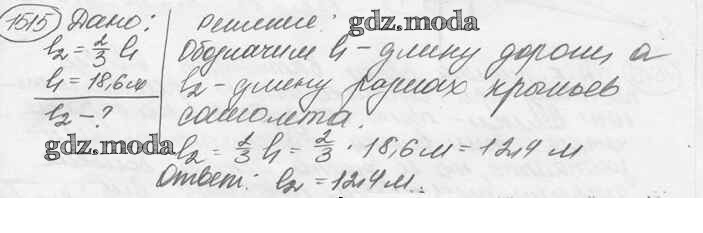 1515 Дано:
l₂ = 2/3 l₁
l₁ = 18,6 м
l₂ - ?
Решение:
gdz.moda
Обозначим l₁ - длину дороги, а
l₂ - длину размах крыльев
самолета.
gdz.moda
l₂ = 2/3 l₁ = 2/3 · 18,6 м = 12,4 м
Ответ: l₂ = 12,4 м.